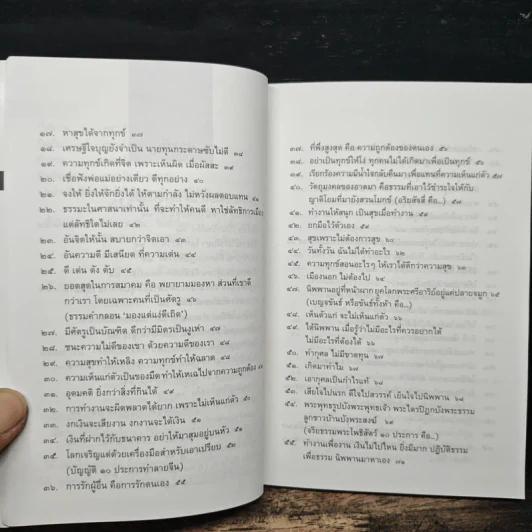 ๑๗. หาสุขได้จากทุกข์ ๓๗
๑๘. เศรษฐีใจบุญยังจำเป็น นายทุนกระดาษซับไม่ดี ๓๘
๑๙. ความทุกข์เกิดที่จิต เพราะเห็นผิด เมื่อผัสสะ ๓๙
๒๐. เชื่อฟังพ่อแม่อย่างเดียว ดีทุกอย่าง ๔๐
๒๑. จงให้ ยิ่งให้จิกยิ่งได้ ให้ตามกำลัง ไม่หวังผลตอบแทน
๒๒. ธรรมะในศาสนาเท่านั้น ที่จะทำให้คนดี หาใช่ลัทธิการเมือง
แต่ลัทธิใดไม่เลย
๒๓. อันจิตให้นั้น สบายกว่าจิตเอา ๔๓
๒๔. อันความดี มีเสนียด ที่ความเด่น ๔๔
๒๕. ดี เด่น ดัง ดับ ๔๕
๒๖. ยอดสุดในการสมาคม คือ พยายามมองหา ส่วนที่เขาดี
กว่าเรา โดยเฉพาะคนที่เป็นศัตรู ๔๖
(ธรรมคำกลอน 'มองแต่แง่ดีเถิด')
๒๗. มีศัตรูเป็นบัณฑิต ดีกว่ามีมิตรเป็นงูเห่า ๔๗
๒๘. ชนะความไม่ดีของเขา ด้วยความดีของเรา ๔๘
๒๙. ความสุขทำให้เหลิง ความทุกข์ทำให้ฉลาด ๔๙
๓๐. ความเห็นแก่ตัวเป็นของมืด ทำให้เหเฉไปจากความถูกต้อง
๓๑. อุดมคติ ยิ่งกว่าสิ่งที่กินได้ ๔๙
๓๒. การทำงานจะผิดพลาดได้ยาก เพราะไม่เห็นแก่ตัว
๓๓. งกเงินจะเสียงาน งกงานจะได้เงิน ๕๑
๓๔. เงินที่ฝากไว้กับธนาคาร อย่าให้มาสุมอยู่บนหัว
๓๕. โลกเจริญแต่ด้วยเครื่องมือสำหรับเอาเปรียบ ๕๓
(บัญญัติ ๑๐ ประการทำลายจีน)
๓๖. การรักผู้อื่น คือการรักตนเอง ๕๕
๓๗. ที่พึ่งสูงสุด คือ ความถูกต้องของตนเอง ๕๖
๓๘. อย่าเป็นทุกข์ให้โง่ ทุกคนไม่ได้เกิดมาเพื่อเป็นทุกข์
๓๙. เรียกร้องความมีน้ำใจกลับคืนมา เพื่อแทนที่ความเห็นแก่ตัว
๔๐. วัตถุมงคลของอาตมา คือธรรมที่เอาไว้ชำระใจให้กับ
ญาติโยมที่มายังสวนโมกข์ (อริยสัจสี่ คือ...)
๔๑. ทำงานให้สนุก เป็นสุขเมื่อทำงาน
๔๒. ยกมือไว้ตัวเอง
๔๓. สุขเพราะไม่ต้องการสุข
๔๔. วันทั้งวัน ฉันไม่ได้ทำอะไร
๔๕. ความทุกข์สอนอะไรๆ ให้เราได้ดีกว่าความสุข
๔๖. เมืองนอก ไม่ต้องไป
๔๗. นิพพานอยู่ที่หน้าผาก ยุคโลกพระศรีอาริย์อยู่แค่ปลายจมูก
(เบญจขันธ์ หรือขันธ์ทั้งห้า คือ...)
๔๘. เห็นตัวแก่ จะไม่เห็นแก่ตัว ๖๖
๔๙. ได้นิพพาน เมื่อรู้ว่าไม่มีอะไรที่ควรอยากได้
ไม่มีอะไรที่ต้องได้
๕๐. ทำกุศล ไม่มีขาดทุน
๕๑. เกิดมาทำไม
๕๒. เอากุศลเป็นกำไรแท้
๕๓. เสียใจไปนรก ดีใจไปสวรรค์ เย็นใจไปนิพพาน
๕๔. พระพุทธรูปบังพระพุทธเจ้า พระไตรปิฎกบังพระธรรม
ลูกชาวบ้านบังพระสงฆ์
(จริยธรรมพระโพธิสัตว์ ๑๐ ประการ คือ..)
๕๕. ทำงานเพื่องาน เงินไม่ไปไหน ยิ่งมีมาก ปฏิบัติธรรม
เพื่อธรรม นิพพานมาหาเอง ๗๑